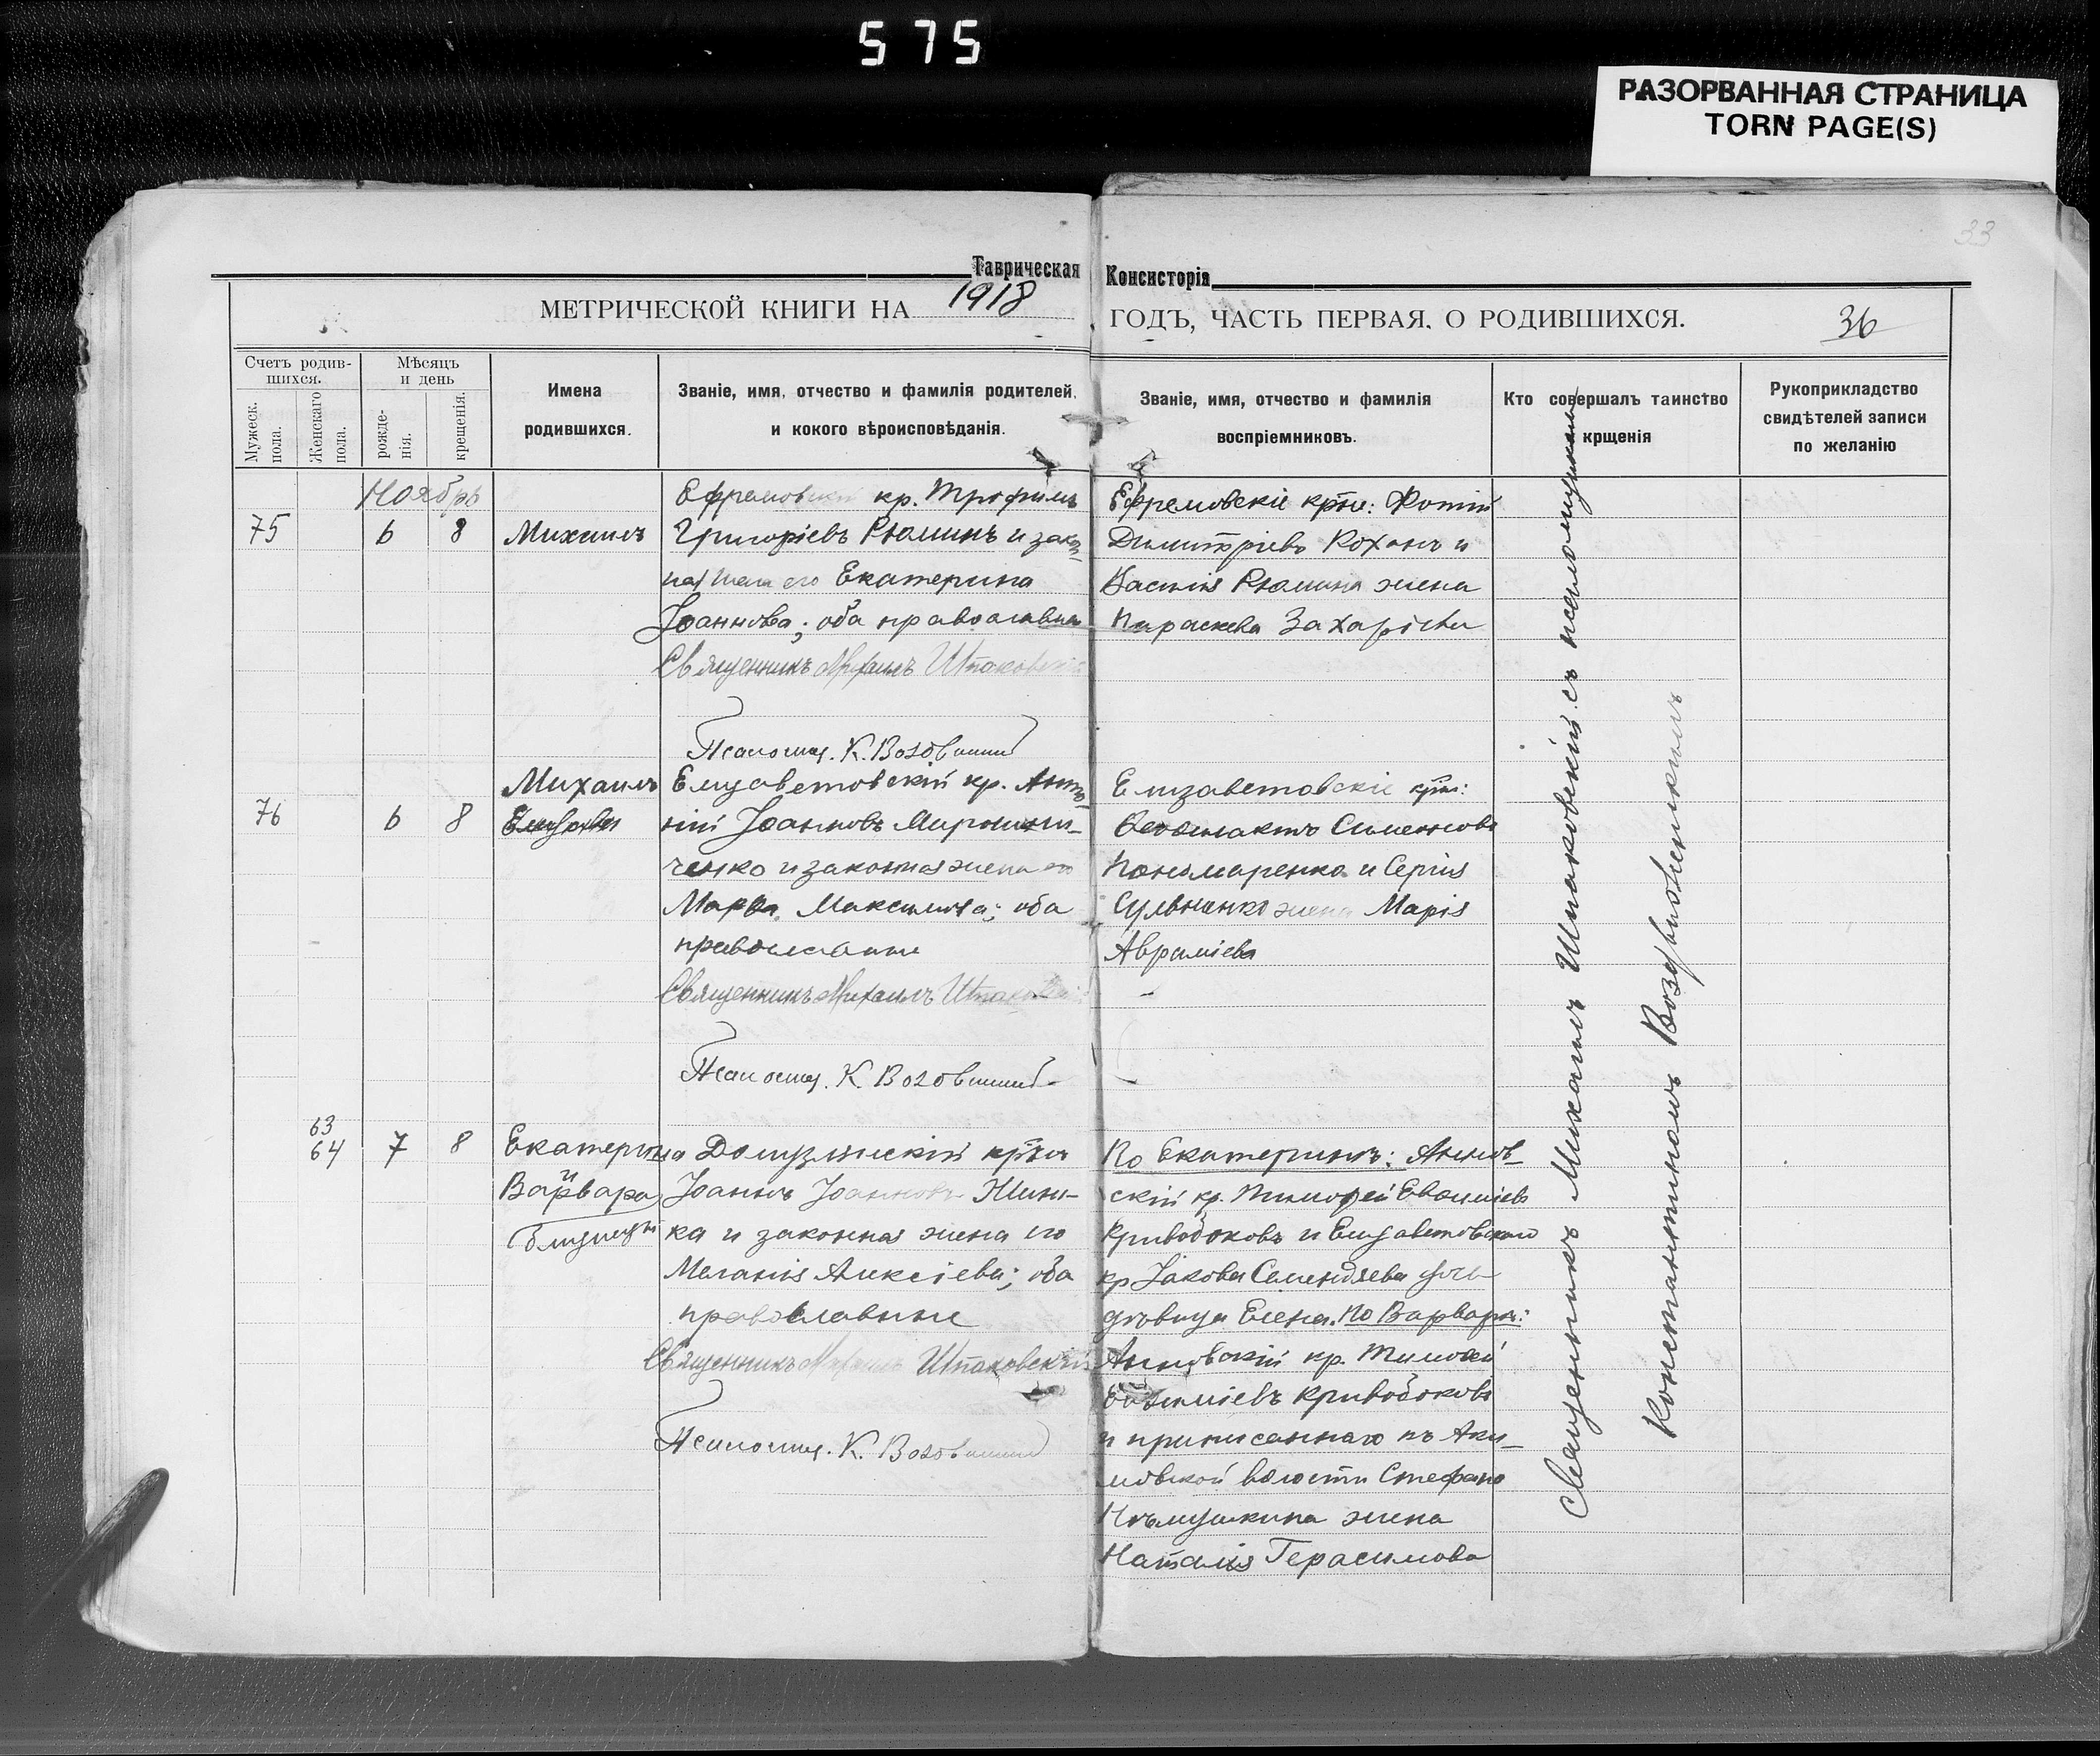 575
РАЗОРВАННАЯ СТРАНИЦА
TORN PAGE(S)
33
Таврическая Консисторія
МЕТРИЧЕСКОЙ КНИГИ НА 1918 ГОДЪ, ЧАСТЬ ПЕРВАЯ, О РОДИВШИХСЯ.
36
Счетъ родив-
шихся.
Мужеск.
пола.
Женскаго
пола.
Мѣсяцъ
и день
рожде-
нія.
крещенія.
Имена
родившихся.
Званіе, имя, отчество и фамилія родителей,
и кокого вѣроисповѣданія.
Званіе, имя, отчество и фамилія
воспріемниковъ.
Кто совершалъ таинство
крщенія
Рукоприкладство
свидѣтелей записи
по желанію
Ноябрь
75
6 8
Михаилъ
Ефремовскій кр. Трофимъ
Григоріевъ Рюминъ и закон-
ная жена его Екатерина
Іоаннова; оба православны
Священникъ Михаилъ Шпаковскій
Псаломщ. К. Воздвиж
Ефремовскіе кр-не: Фотій
Димитріевъ Коханъ и
Рюмина жена
Параскева Захаріева
76
6 8
Михаилъ
Елизаветовскій кр. Анто-
ній Іоанновъ Мирошни-
ченко и законная жена его
Марѳа Максимова; оба
православные
Священникъ Михаилъ Шпаковскій
Псаломщ. К. Воздвиж
Елизаветовскіе кр-не:
Ѳеофилактъ Симеоновъ
Пономаренко и Сергія
жена Марія
Авраміева
63
64
7 8
Екатерина
и
Варвара
близнецы
кр-нъ
Іоаннъ Іоанновъ
ка и законная жена его
Меланія Алексіева; оба
православные
Священникъ Михаилъ Шпаковскій
Псаломщ. К. Воздвиж
По Екатеринѣ: Аннов-
скій кр. Тимоѳей Евѳиміевъ
Кривобоковъ и Елизаветовскаго
кр. Іакова Семендяева дочь
дѣвица Елена. По Варварѣ:
Анновскій кр. Тимоѳей
Евѳиміевъ Кривобоковъ
и приписаннаго къ Аки-
мовской волости Стефана
жена
Наталія Герасимова
Священникъ Михаилъ Шпаковскій съ псаломщикомъ
Константиномъ Воздвиженскимъ